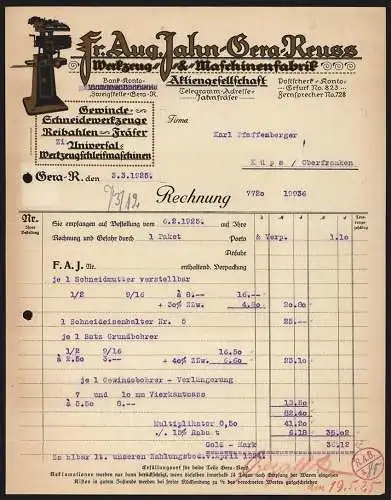 Fr. Aug. Jahn - Gera-Reuss
Werkzeug- & Maschinenfabrik
Aktiengesellschaft
Bank-Konto
Zweigstelle-Gera-R.
Telegramm-Adresse
Jahnfräser
Postscheck-Konto
Erfurt No. 823
Fernsprecher No. 728
Gewinde-
Schneidewerkzeuge
Reibahlen - Fräser
Universal-
Werkzeugschleifmaschinen
Firma
Karl Pfaffenberger
Küps / Oberfranken
Gera-R. den 3.3.1925.
Rechnung 7720 19936
Nr.
Ihrer Bestellung
Sie empfangen auf Bestellung vom 6.2.1925. auf Ihre
Rechnung und Gefahr durch 1 Paket Porto & Verp. 1.10
F. A. J. Nr. enthaltend. Verpackung
je 1 Schneidmutter verstellbar
1/2 9/16 à 8.-- 16.--
+ 30% Zzw. 4.80 20.80
je 1 Schneideisenhalter Nr. 5 25.--
je 1 Satz Grundbohrer
1/2 9/16 16.50
à 2.50 3.-- + 40% Zzw. 6.60 23.10
je 1 Gewindebohrer - Verlängerung
7 und 10 mm Vierkantmass
à 5.50 8.-- 13.50
82.40
Multiplikator 0,50 41.20
./. 15% Rabatt 6.18 35.02
Gold - Mark 36.12
Zahlbar lt. unseren Zahlungsbed. v. April 1924.
Erfüllungsort für beide Teile Gera-Reuß.
Reklamationen werden nur dann berücksichtigt, wenn dieselben innerhalb 14 Tagen nach Empfang der Waren eingehen
Kisten in gutem Zustand werden bei freier Rücksendung zu ⅔ des berechneten Wertes gutgeschrieben